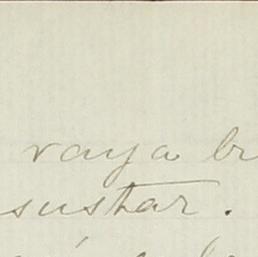 raya br
sustar.